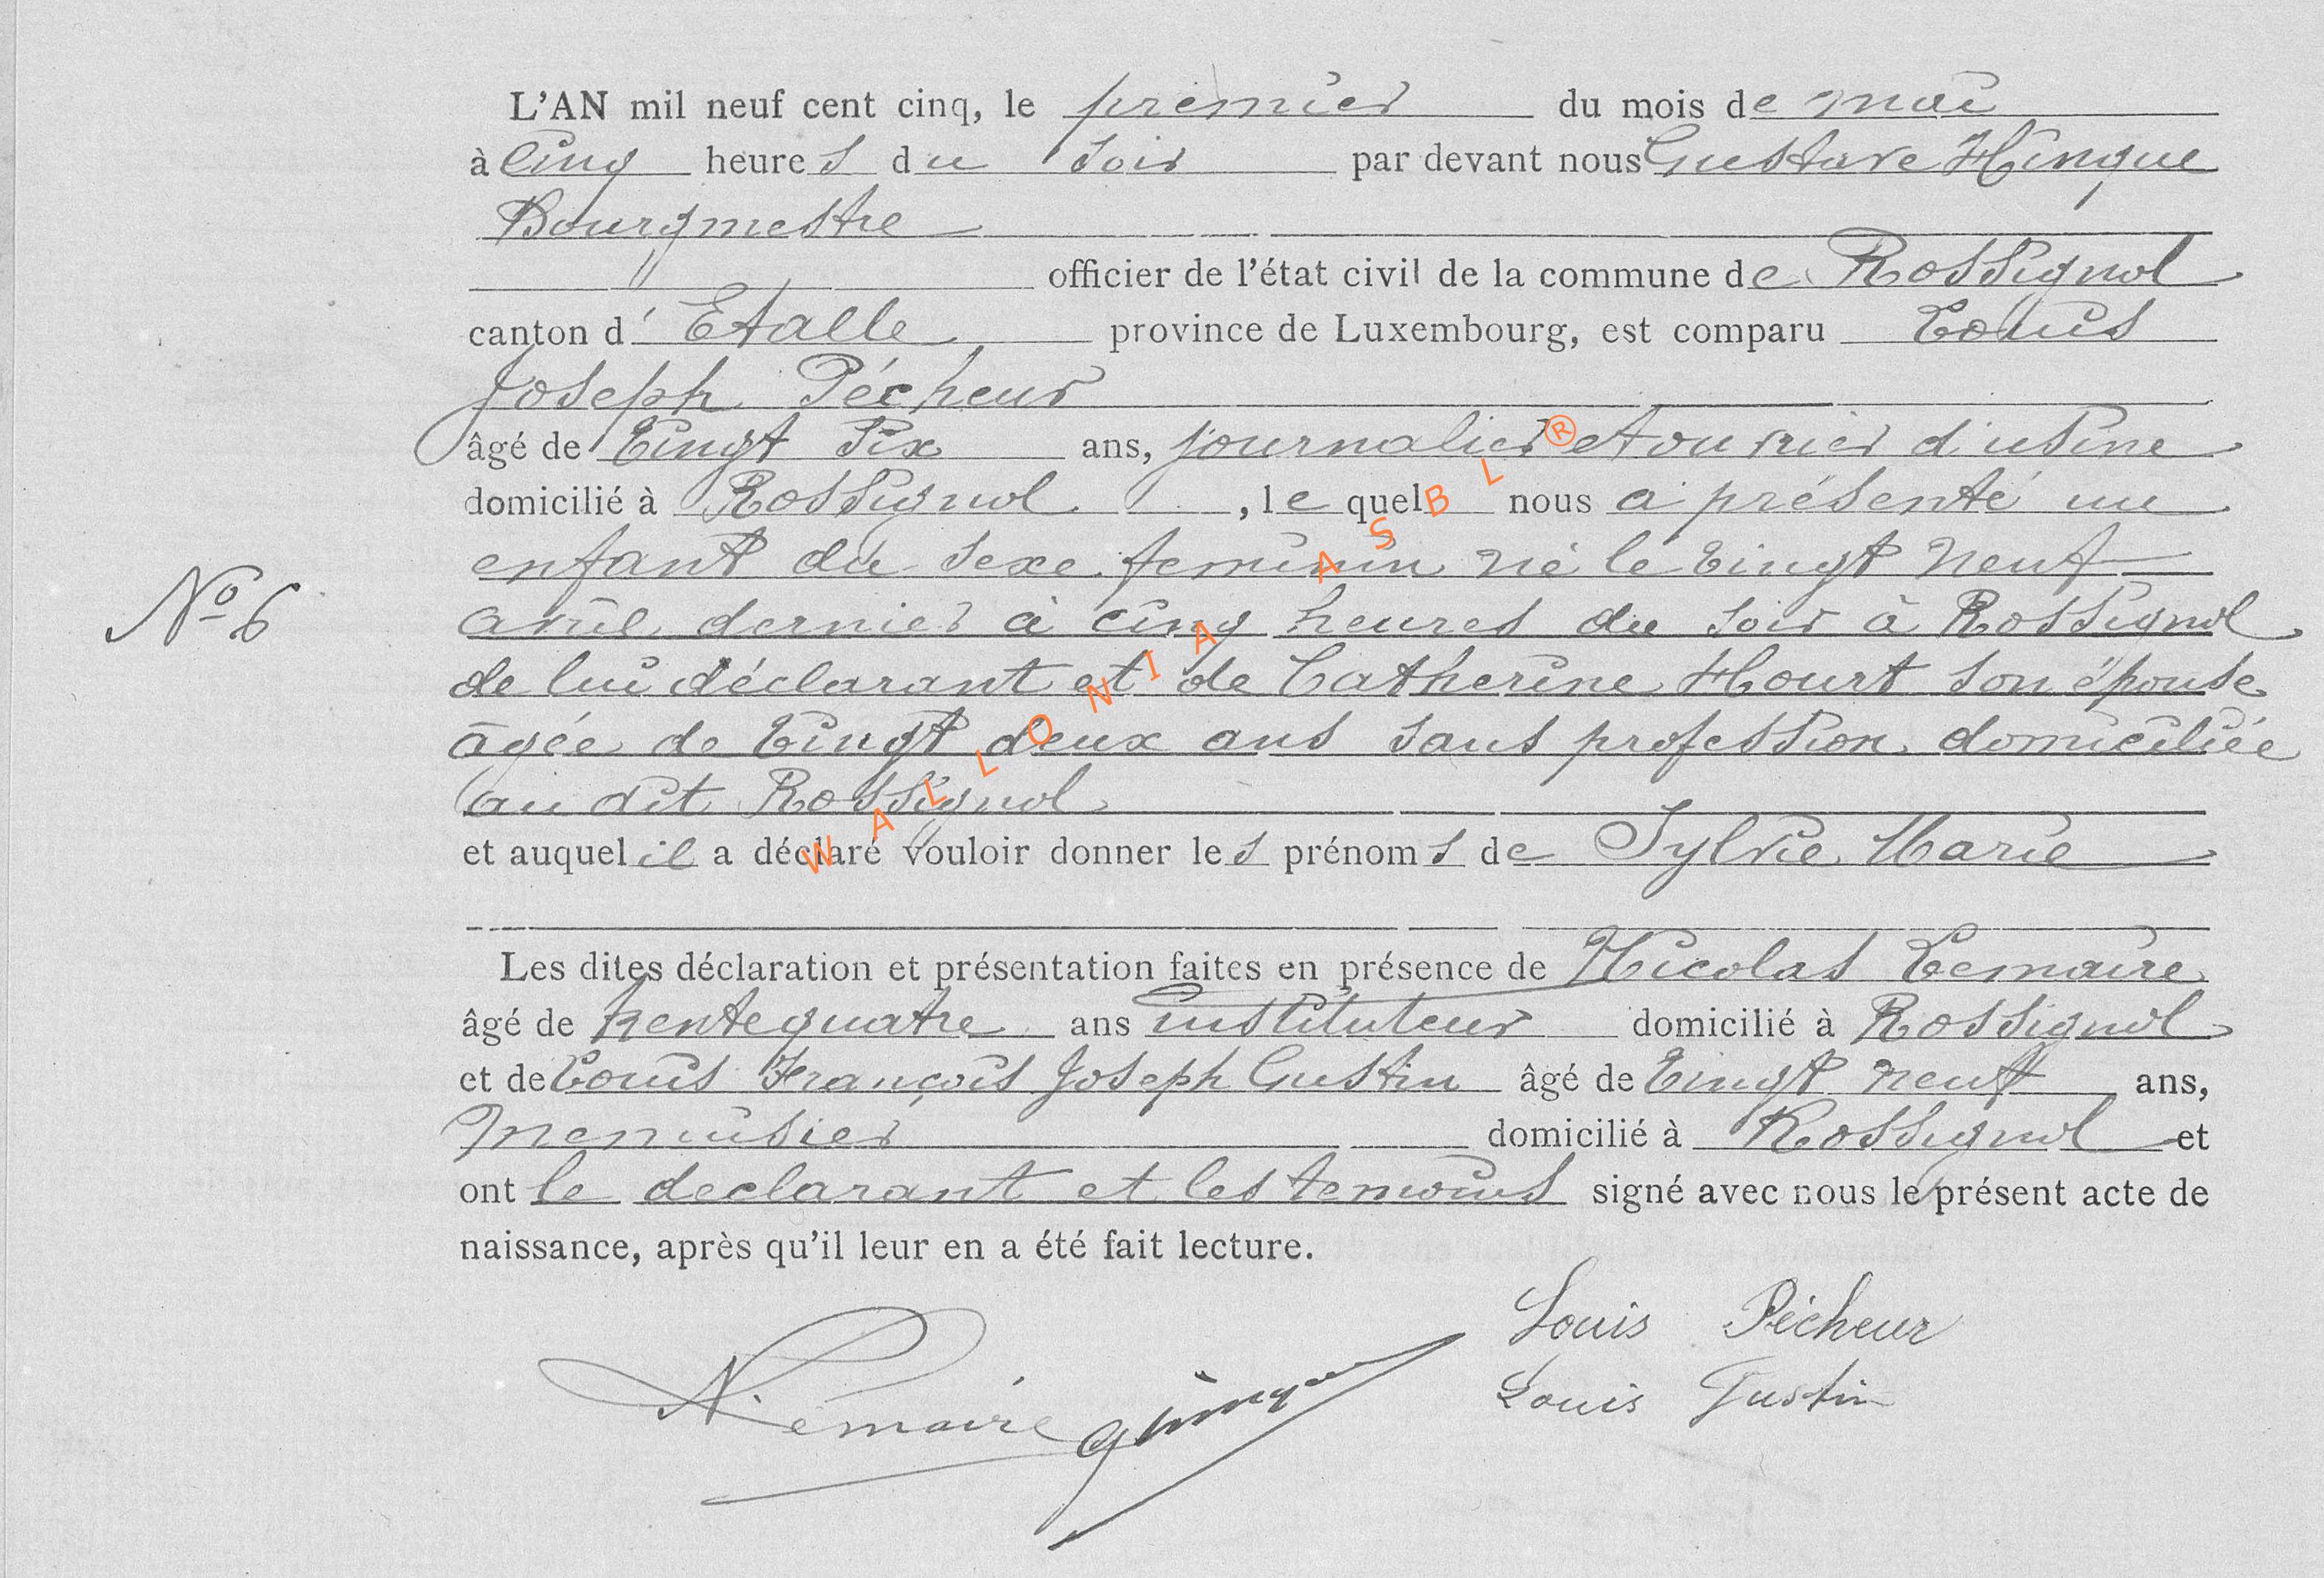 L'AN mil neuf cent cinq, le premier du mois de mai
à Cinq heures du soir par devant nous Gustave Hinque
Bourgmestre
officier de l'état civil de la commune de Rossignol
canton d' Etalle province de Luxembourg, est comparu Louis
Joseph Pécheur
âgé de Vingt Six ans, journalier et ouvrier d'usine
domicilié à Rossignol, le quel nous a présenté un
enfant du sexe feminin né le vingt neuf
Nº 6
avril dernier à cinq heures du soir à Rossignol
de lui déclarant et de Catherine Hourt son épouse
âgée de vingt deux ans sans profession domiciliée
au dit Rossignol
et auquel il a déclaré vouloir donner les prénoms de Sylvie Marie
Les dites déclaration et présentation faites en présence de Nicolas Lemaire
âgé de trente quatre ans instituteur domicilié à Rossignol
et de Louis François Joseph Gustin âgé de Vingt neuf ans,
menuisier domicilié à Rossignol et
ont le declarant et les temoins signé avec nous le présent acte de
naissance, après qu'il leur en a été fait lecture.
Louis Pécheur
N. Lemaire GHinque Louis Gustin
WALLONIA ASBL ®